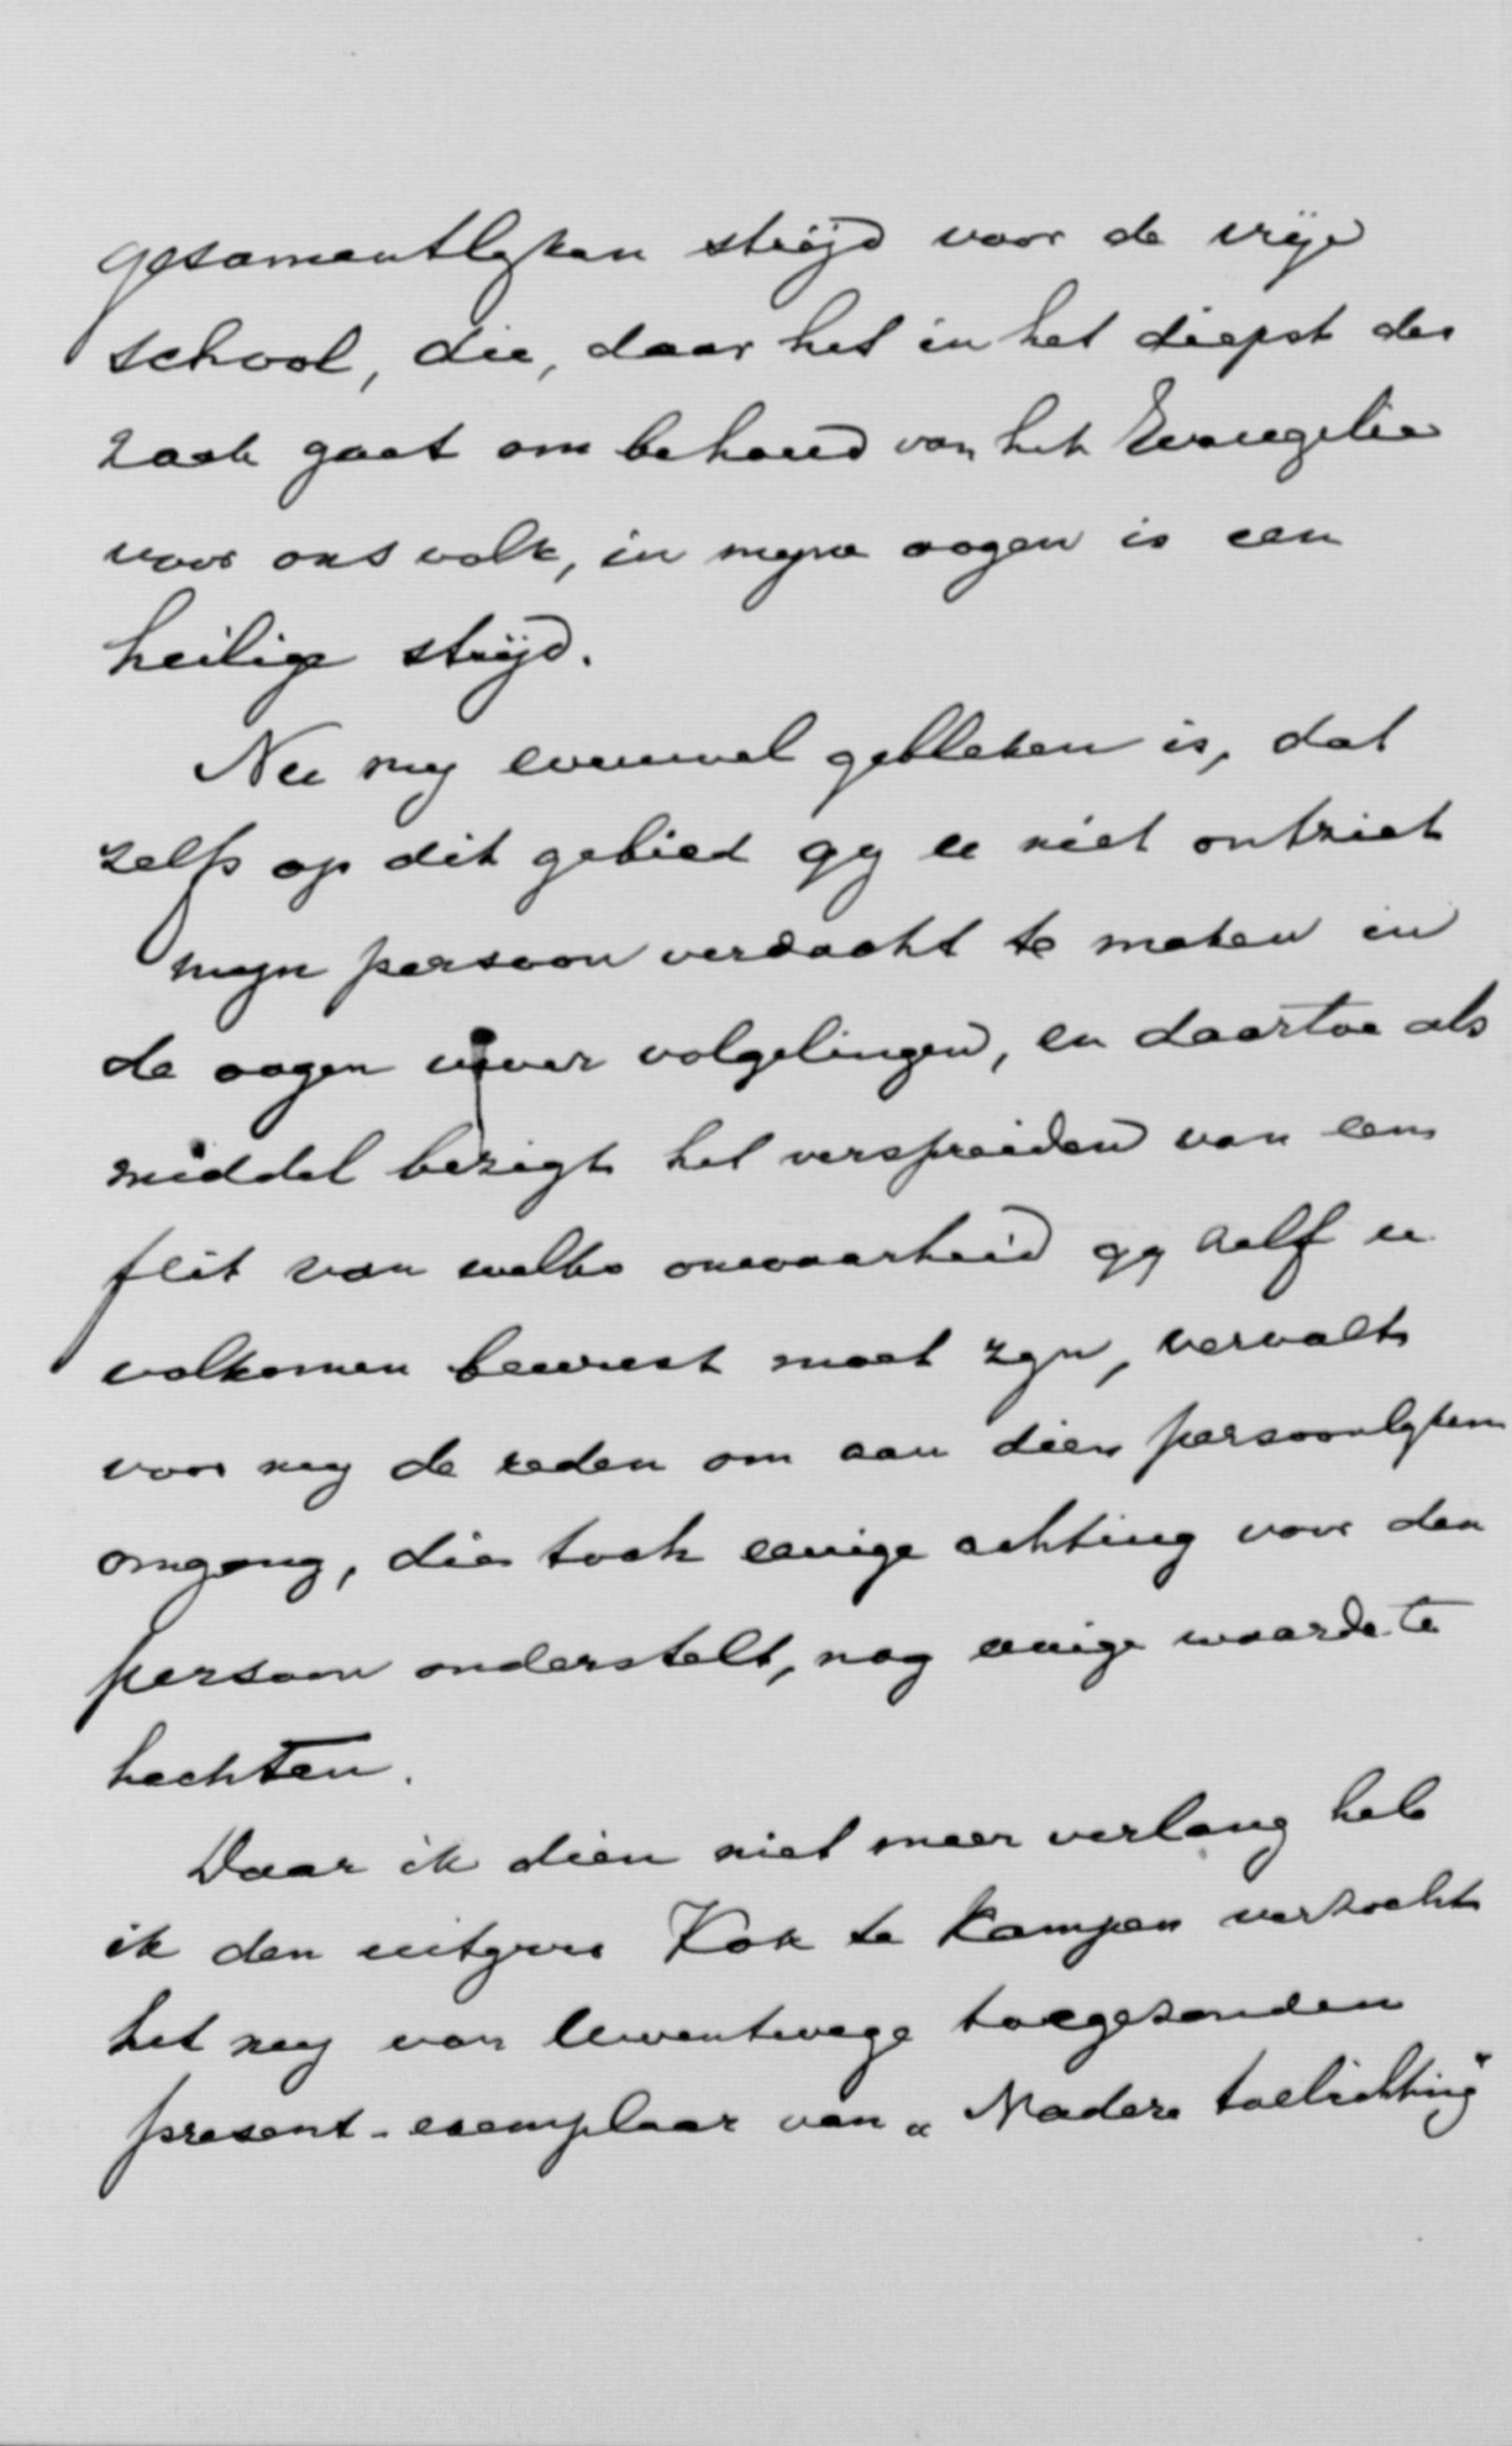 gesamentlyken strijd voor de vrije
school, die, daar het in het diepst der
zaak gaat om behoud van het Evangelie
voor ons volk, in myne oogen is een
heilige strijd.
Nu my evenwel gebleken is, dat
zelfs op dit gebied gy u niet ontziet
myn persoon verdacht te maken in
de oogen uwer volgelingen, en daartoe als
middel bezigt het verspreiden van een
feit van welks onwaarheid gy zelf u
volkomen bewust moet zyn, vervalt
voor my de reden om aan dien persoonlyken
omgang, die toch eenige achting voor den
persoon onderstelt, nog eenige waarde te
hechten.
Daar ik dien niet meer verlang heb
ik den uitgever Kok te Kampen verzocht
het my van Uwentwege toegezonden
present-exemplaar van „Nadere toelichting"